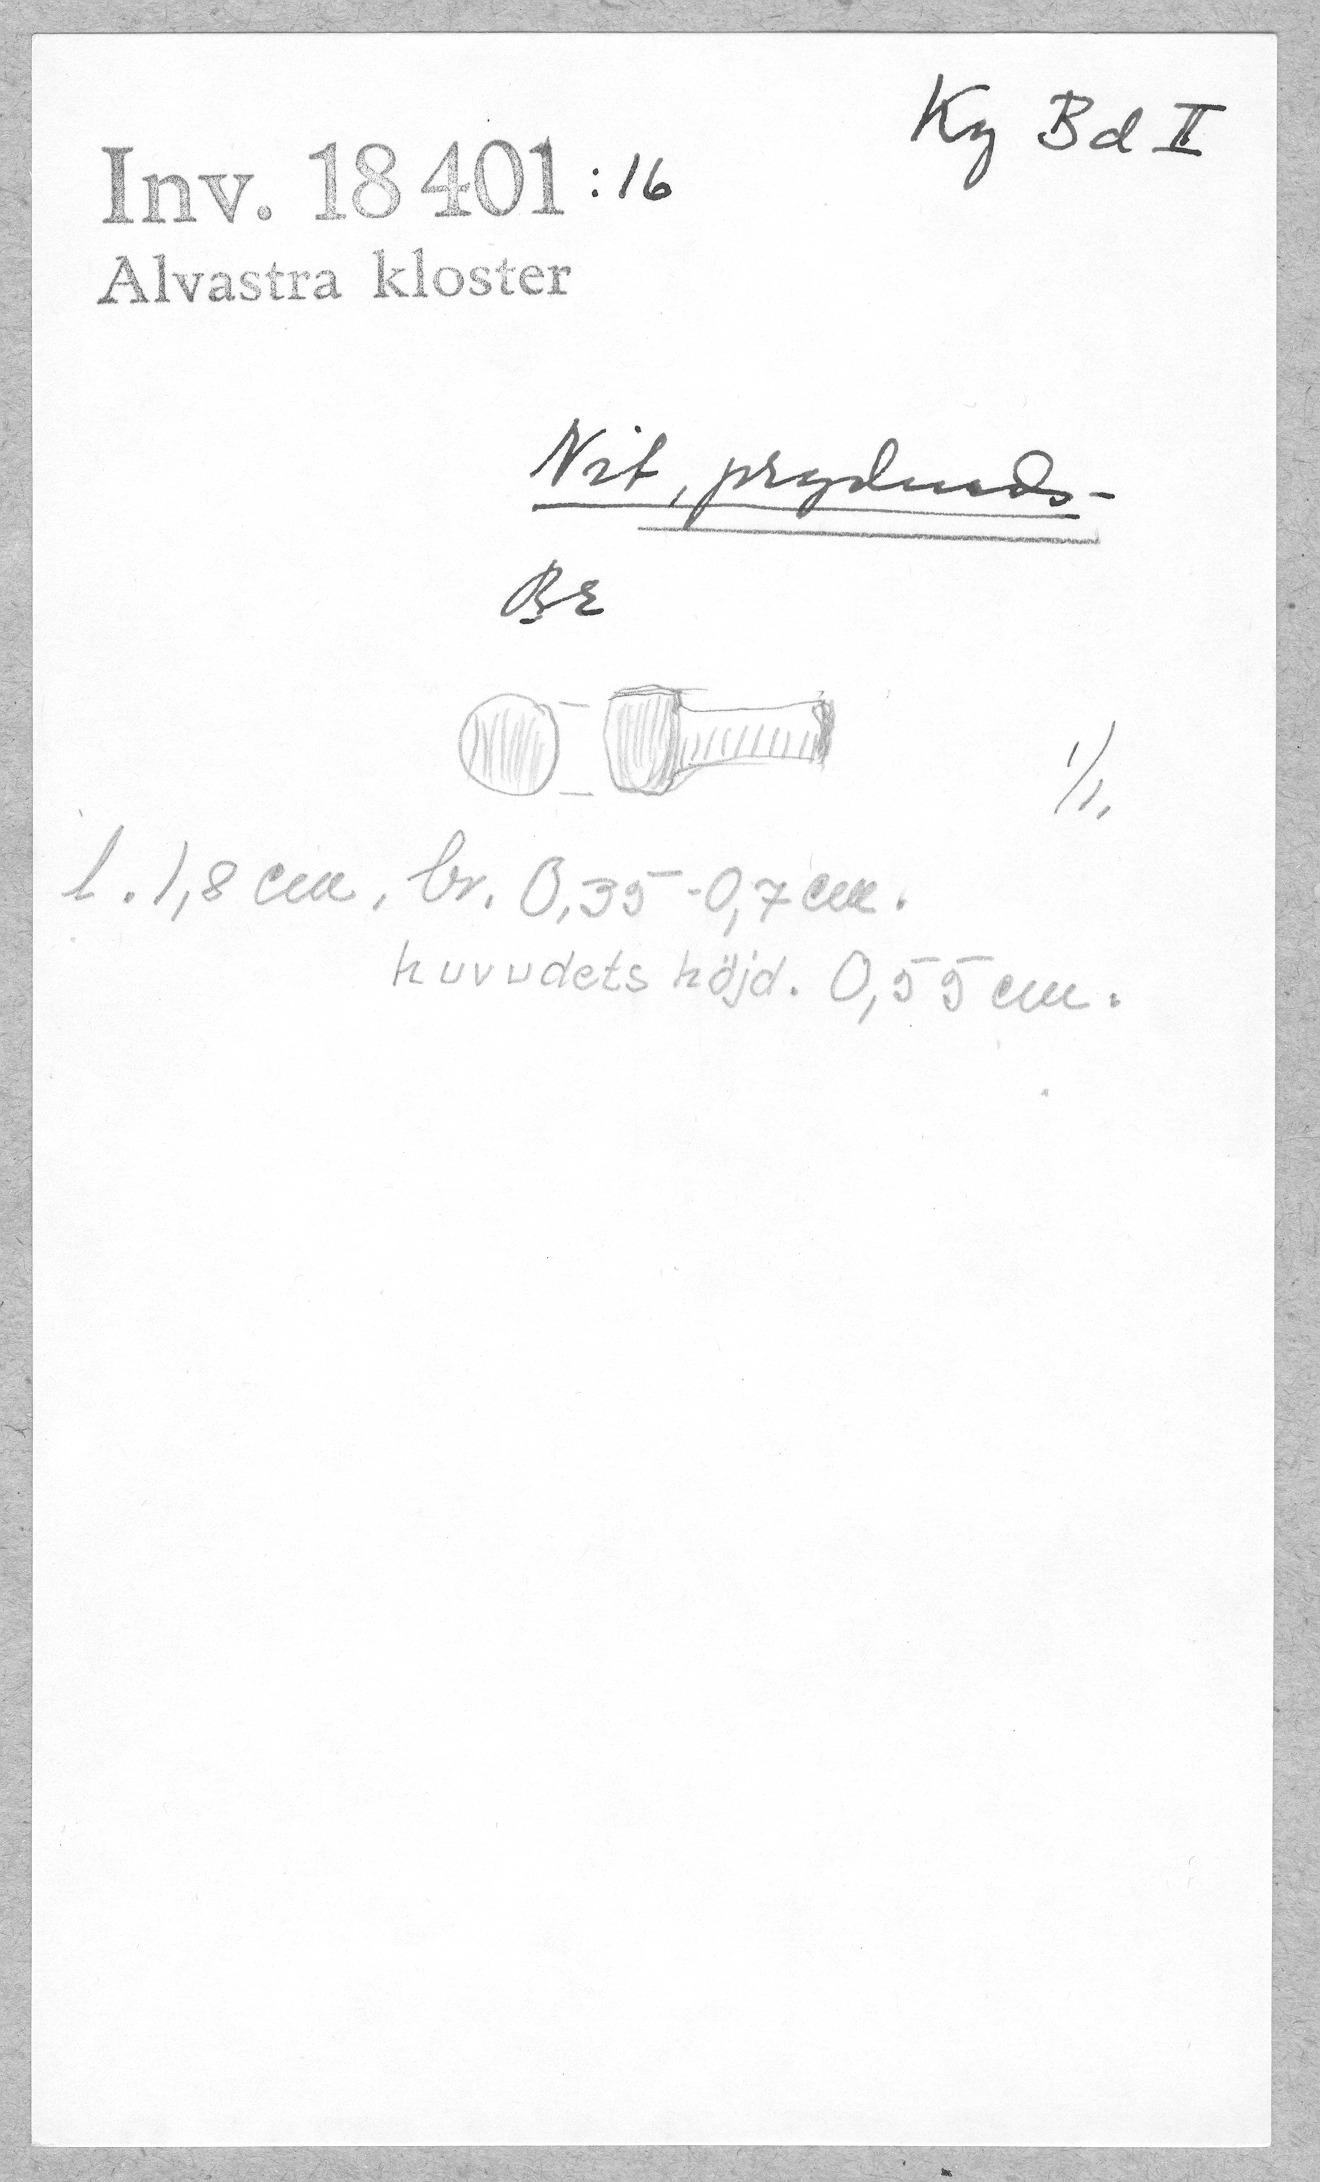 Ky Bd II
Inv. 18 401 :16
Alvastra kloster
Nit, prydnads-
Br
1/1.
l. 1,8 cm, br. 0,35-0,7 cm.
huvudets höjd. 0,55 cm.